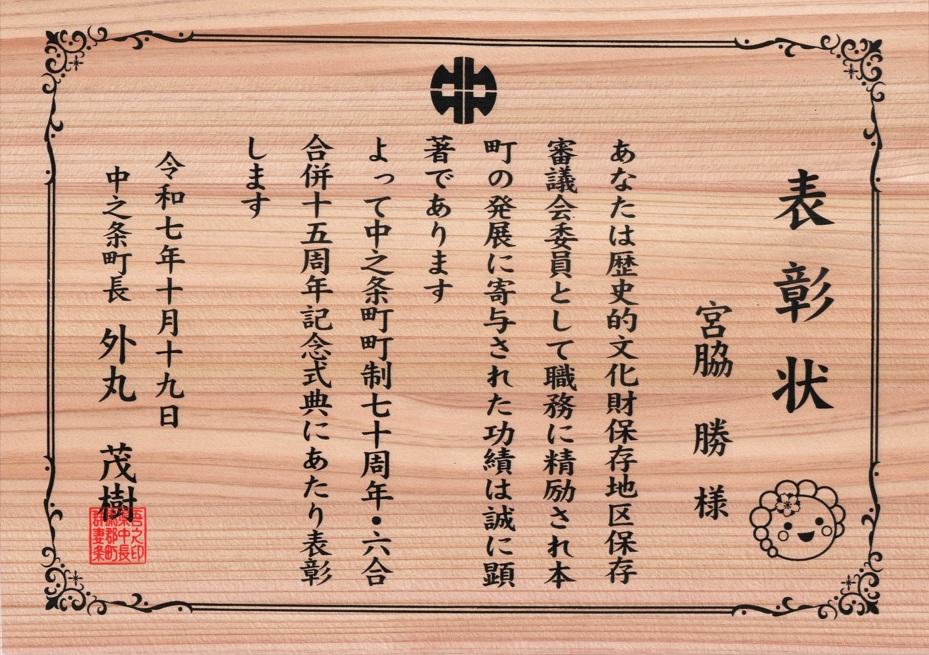 表彰状
宮脇 勝 様
あなたは歴史的文化財保存地区保存
審議会委員として職務に精励され本
町の発展に寄与された功績は誠に顕
著であります
よって中之条町町制七十周年・六合
合併十五周年記念式典にあたり表彰
します
令和七年十月十九日
中之条町長 外丸 茂樹